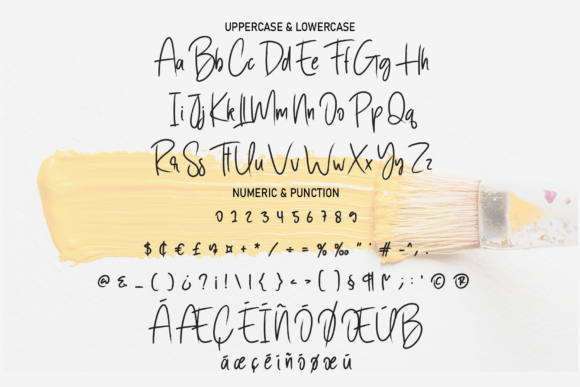 UPPERCASE & LOWERCASE
Aa Bb Cc Dd Ee Ff Gg Hh
Ii Jj Kk Ll Mm Nn Oo Pp Qq
Rr Ss Tt Uu Vv Ww Xx Yy Zz
NUMERIC & PUNCTION
0 1 2 3 4 5 6 7 8 9
$ ¢ € £ ¤ + * / ÷ = % ‰ " ' # - ^ , .
@ & _ ( ) ¿ ? ¡ ! \ | { } < > [ ] § ¶ ; : ' © ®
Á Æ Ç É Í Ñ Ó Ø Œ Ú ß
á æ ç é í ñ ó ø œ ú